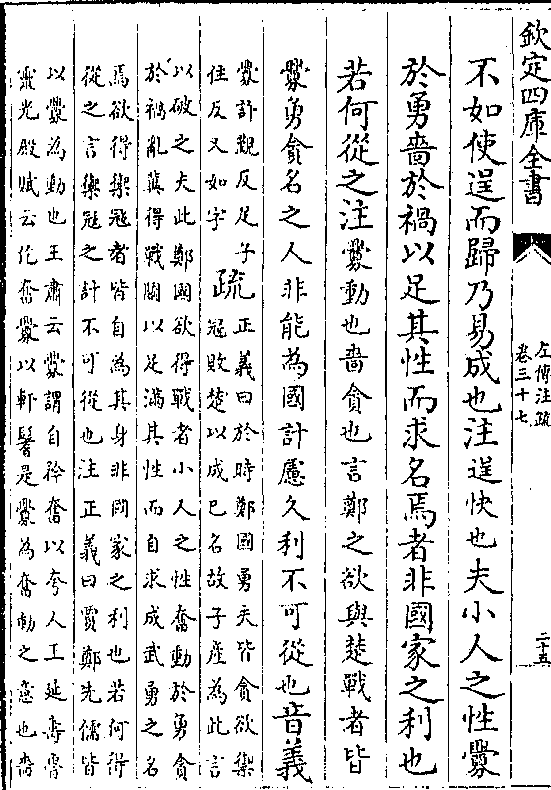 欽定四庫全書
左傳注疏
卷三十七
二十五
不如使逞而歸乃易成也注逞快也夫小人之性釁
於勇嗇於禍以足其性而求名焉者非國家之利也
若何從之注釁動也嗇貪也言鄭之欲與楚戰者皆
釁勇貪名之人非能為國計慮久利不可從也音義
釁訢覲反足子
住反又如字
疏
正義曰於時鄭國勇夫皆貪欲禦
冦敗楚以成已名故子產為此言
以破之夫此鄭國欲得戰者小人之性奮動於勇貪
於禍亂冀得戰鬬以足滿其性而自求成武勇之名
焉欲得禦冦者皆自為其身非國家之利也若何得
從之言禦冦之計不可從也注正義曰賈鄭先儒皆
以釁為動也王肅云釁謂自矜奮以夸人王延壽魯
靈光殿賦云仡奮釁以軒鬐是釁為奮動之意也嗇